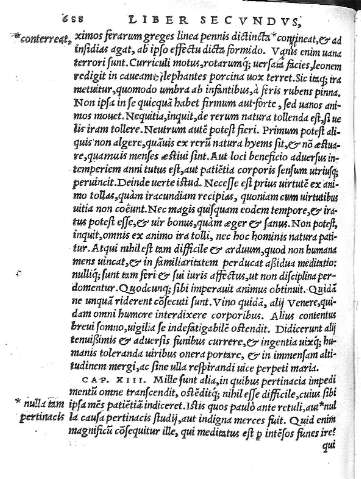 688 LIBER SECVNDVS,
*conterreat, ximos ferarum greges linea pennis distincta *contineat, & ad
insidias agat, ab ipso effectu dicta formido. Vanis enim uana
terrori sunt. Curriculi motus, rotarumq; uersata facies, leonem
redigit in caueam: elephantes porcina uox terret. Sic itaq; ira
metuitur, quomodo umbra ab infantibus, à feris rubens pinna.
Non ipsa in se quicquā habet firmum aut forte, sed uanos ani
mos mouet. Nequitia, inquit, de rerum natura tollenda est, si ue
lis iram tollere. Neutrum autē potest fieri. Primum potest ali
quis non algere, quāuis ex rerū natura hyems sit, & nō æstua-
re, quamuis menses æstiui sint. Aut loci beneficio aduersus in-
temperiem anni tutus est, aut patiētia corporis sensum utriusq;
peruincit. Deinde uerte istud. Necesse est prius uirtutē ex ani
mo tollas, quàm iracundiam recipias, quoniam cum uirtutibus
uitia non coëunt. Nec magis quisquam eodem tempore, & ira-
tus potest esse, & uir bonus, quàm æger & sanus. Non potest,
inquit, omnis ex animo ira tolli, nec hoc hominis natura pati-
tur. Atqui nihil est tam difficile & arduum, quod non humana
mens uincat, & in familiaritatem perducat assidua meditatio:
nulliq; sunt tam feri & sui iuris affectus, ut non disciplina per-
domentur. Quodcunq; sibi imperauit animus obtinuit. Quidā
ne unquā riderent cōsecuti sunt. Vino quidā, alij Venere, qui-
dam omni humore interdixere corporibus. Alius contentus
breui somno, uigilia se indefatigabilē ostendit. Didicerunt alij
tenuissimis & aduersis funibus currere, & ingentia uixq; hu-
manis toleranda uiribus onera portare, & in immensam alti-
tudinem mergi, ac sine ulla respirandi uice perpeti maria.
CAP. XIII. Mille sunt alia, in quibus pertinacia impedi
mentū omne transcendit, ostēditq; nihil esse difficile, cuius sibi
*nulla tam ipsa mēs patiētiā indiceret. Istis quos paulo ante retuli, aut *nul
pertinacis la causa pertinacis studij, aut indigna merces fuit. Quid enim
magnificū cōsequitur ille, qui meditatus est p intēsos funes ire?
qui